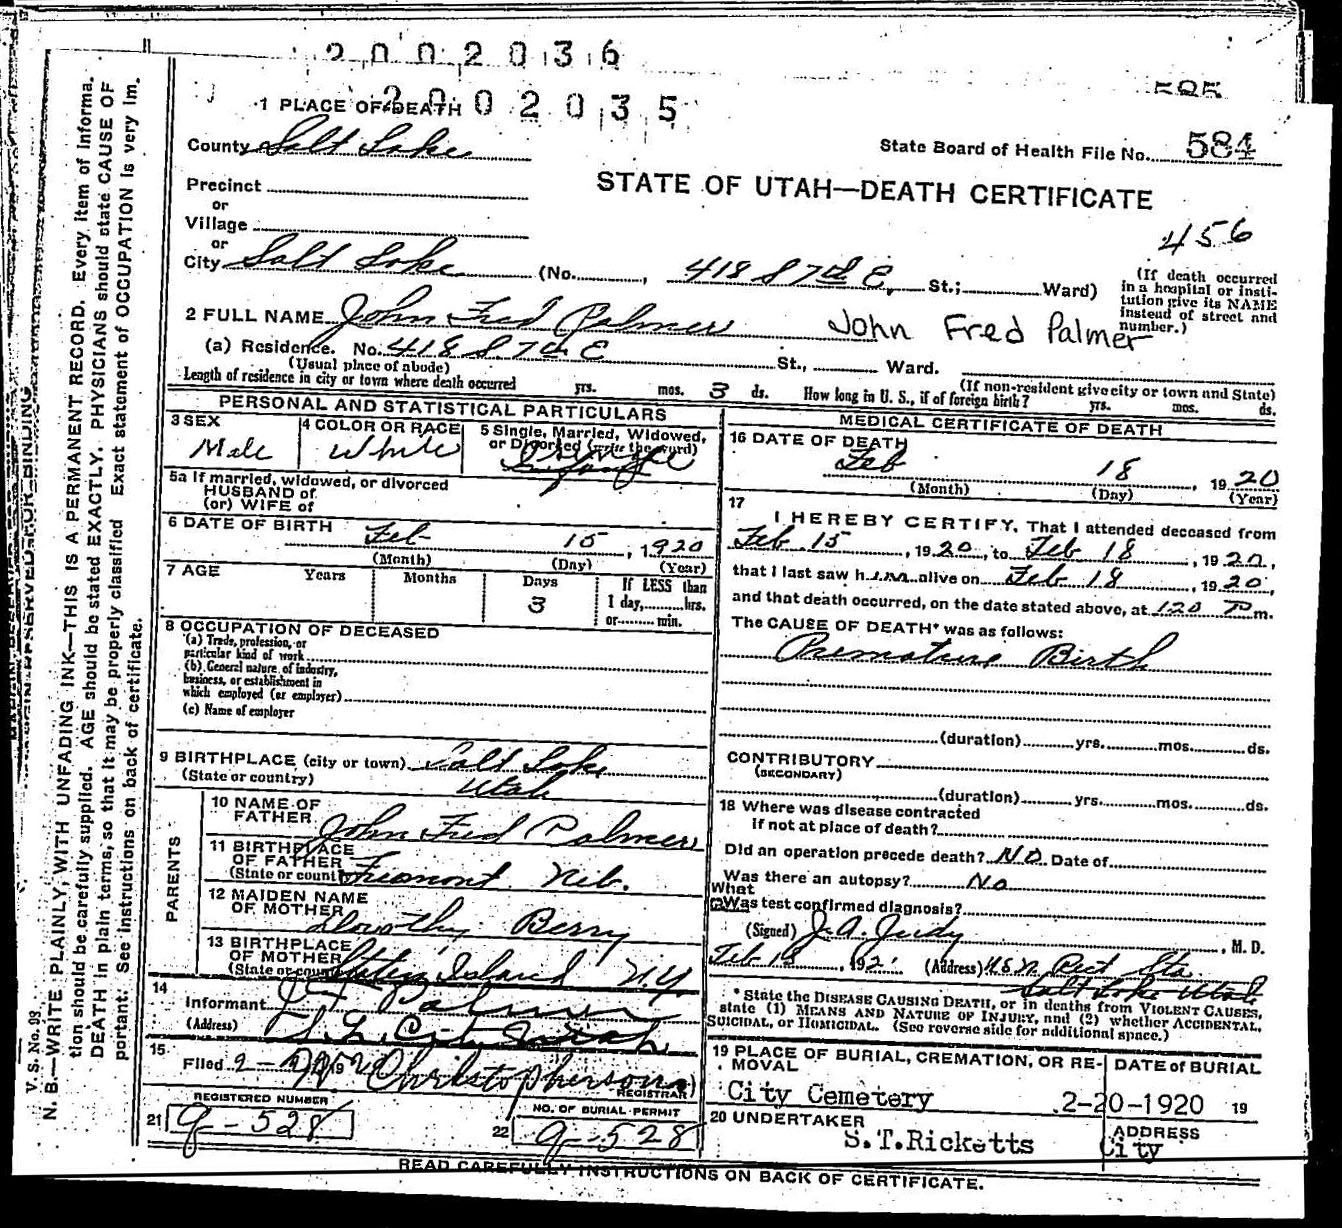 2002036
2002035
585
1 PLACE OF DEATH
County Salt Lake
State Board of Health File No. 584
Precinct
or
Village
or
City Salt Lake (No. , 418 S 7th E, St.; Ward)
STATE OF UTAH—DEATH CERTIFICATE
456
(If death occurred
in a hospital or insti-
tution give its NAME
instead of street and
number.)
2 FULL NAME John Fred Palmer John Fred Palmer
(a) Residence. No. 418 S 7th E St., Ward.
(Usual place of abode) (If non-resident give city or town and State)
Length of residence in city or town where death occurred yrs. mos. 3 ds. How long in U. S., if of foreign birth? yrs. mos. ds.
PERSONAL AND STATISTICAL PARTICULARS
3 SEX
Male
4 COLOR OR RACE
White
5 Single, Married, Widowed,
or Divorced (write the word)
5a If married, widowed, or divorced
HUSBAND of
(or) WIFE of
6 DATE OF BIRTH Feb 15, 1920
(Month) (Day) (Year)
7 AGE Years Months Days If LESS than
3 1 day, hrs.
or min.
8 OCCUPATION OF DECEASED
(a) Trade, profession, or
particular kind of work
(b) General nature of industry,
business, or establishment in
which employed (or employer)
(c) Name of employer
9 BIRTHPLACE (city or town) Salt Lake
(State or country) Utah
PARENTS
10 NAME OF
FATHER John Fred Palmer
11 BIRTHPLACE
OF FATHER
(State or country) Fremont Neb.
12 MAIDEN NAME
OF MOTHER Dorothy Berry
13 BIRTHPLACE
OF MOTHER
(State or country) Staten Island N.Y.
14
Informant J F Palmer
(Address) S. L. City Utah
15
Filed 2- Christopherson
REGISTRAR
REGISTERED NUMBER
21 g-528
NO. OF BURIAL PERMIT
22 g-528
MEDICAL CERTIFICATE OF DEATH
16 DATE OF DEATH
Feb 18, 1920
(Month) (Day) (Year)
17
I HEREBY CERTIFY, That I attended deceased from
Feb 15, 1920, to Feb 18, 1920,
that I last saw him alive on Feb 18, 1920,
and that death occurred, on the date stated above, at 120 P m.
The CAUSE OF DEATH* was as follows:
Premature Birth
(duration) yrs. mos. ds.
CONTRIBUTORY
(SECONDARY)
(duration) yrs. mos. ds.
18 Where was disease contracted
if not at place of death?
Did an operation precede death? No Date of
Was there an autopsy? No
What
Was test confirmed diagnosis?
(Signed) J. A. Judy, M. D.
Feb 18, 192 (Address) U S N Rect Sta
Salt Lake Utah
* State the DISEASE CAUSING DEATH, or in deaths from VIOLENT CAUSES,
state (1) MEANS AND NATURE OF INJURY, and (2) whether ACCIDENTAL,
SUICIDAL, or HOMICIDAL. (See reverse side for additional space.)
19 PLACE OF BURIAL, CREMATION, OR RE-
MOVAL
City Cemetery
DATE of BURIAL
2-20-1920 19
20 UNDERTAKER
S.T.Ricketts
ADDRESS
City
READ CAREFULLY INSTRUCTIONS ON BACK OF CERTIFICATE.
V. S. No. 98
N. B.—WRITE PLAINLY, WITH UNFADING INK—THIS IS A PERMANENT RECORD. Every item of informa-
tion should be carefully supplied. AGE should be stated EXACTLY. PHYSICIANS should state CAUSE OF
DEATH in plain terms, so that it may be properly classified Exact statement of OCCUPATION is very im-
portant. See instructions on back of certificate.